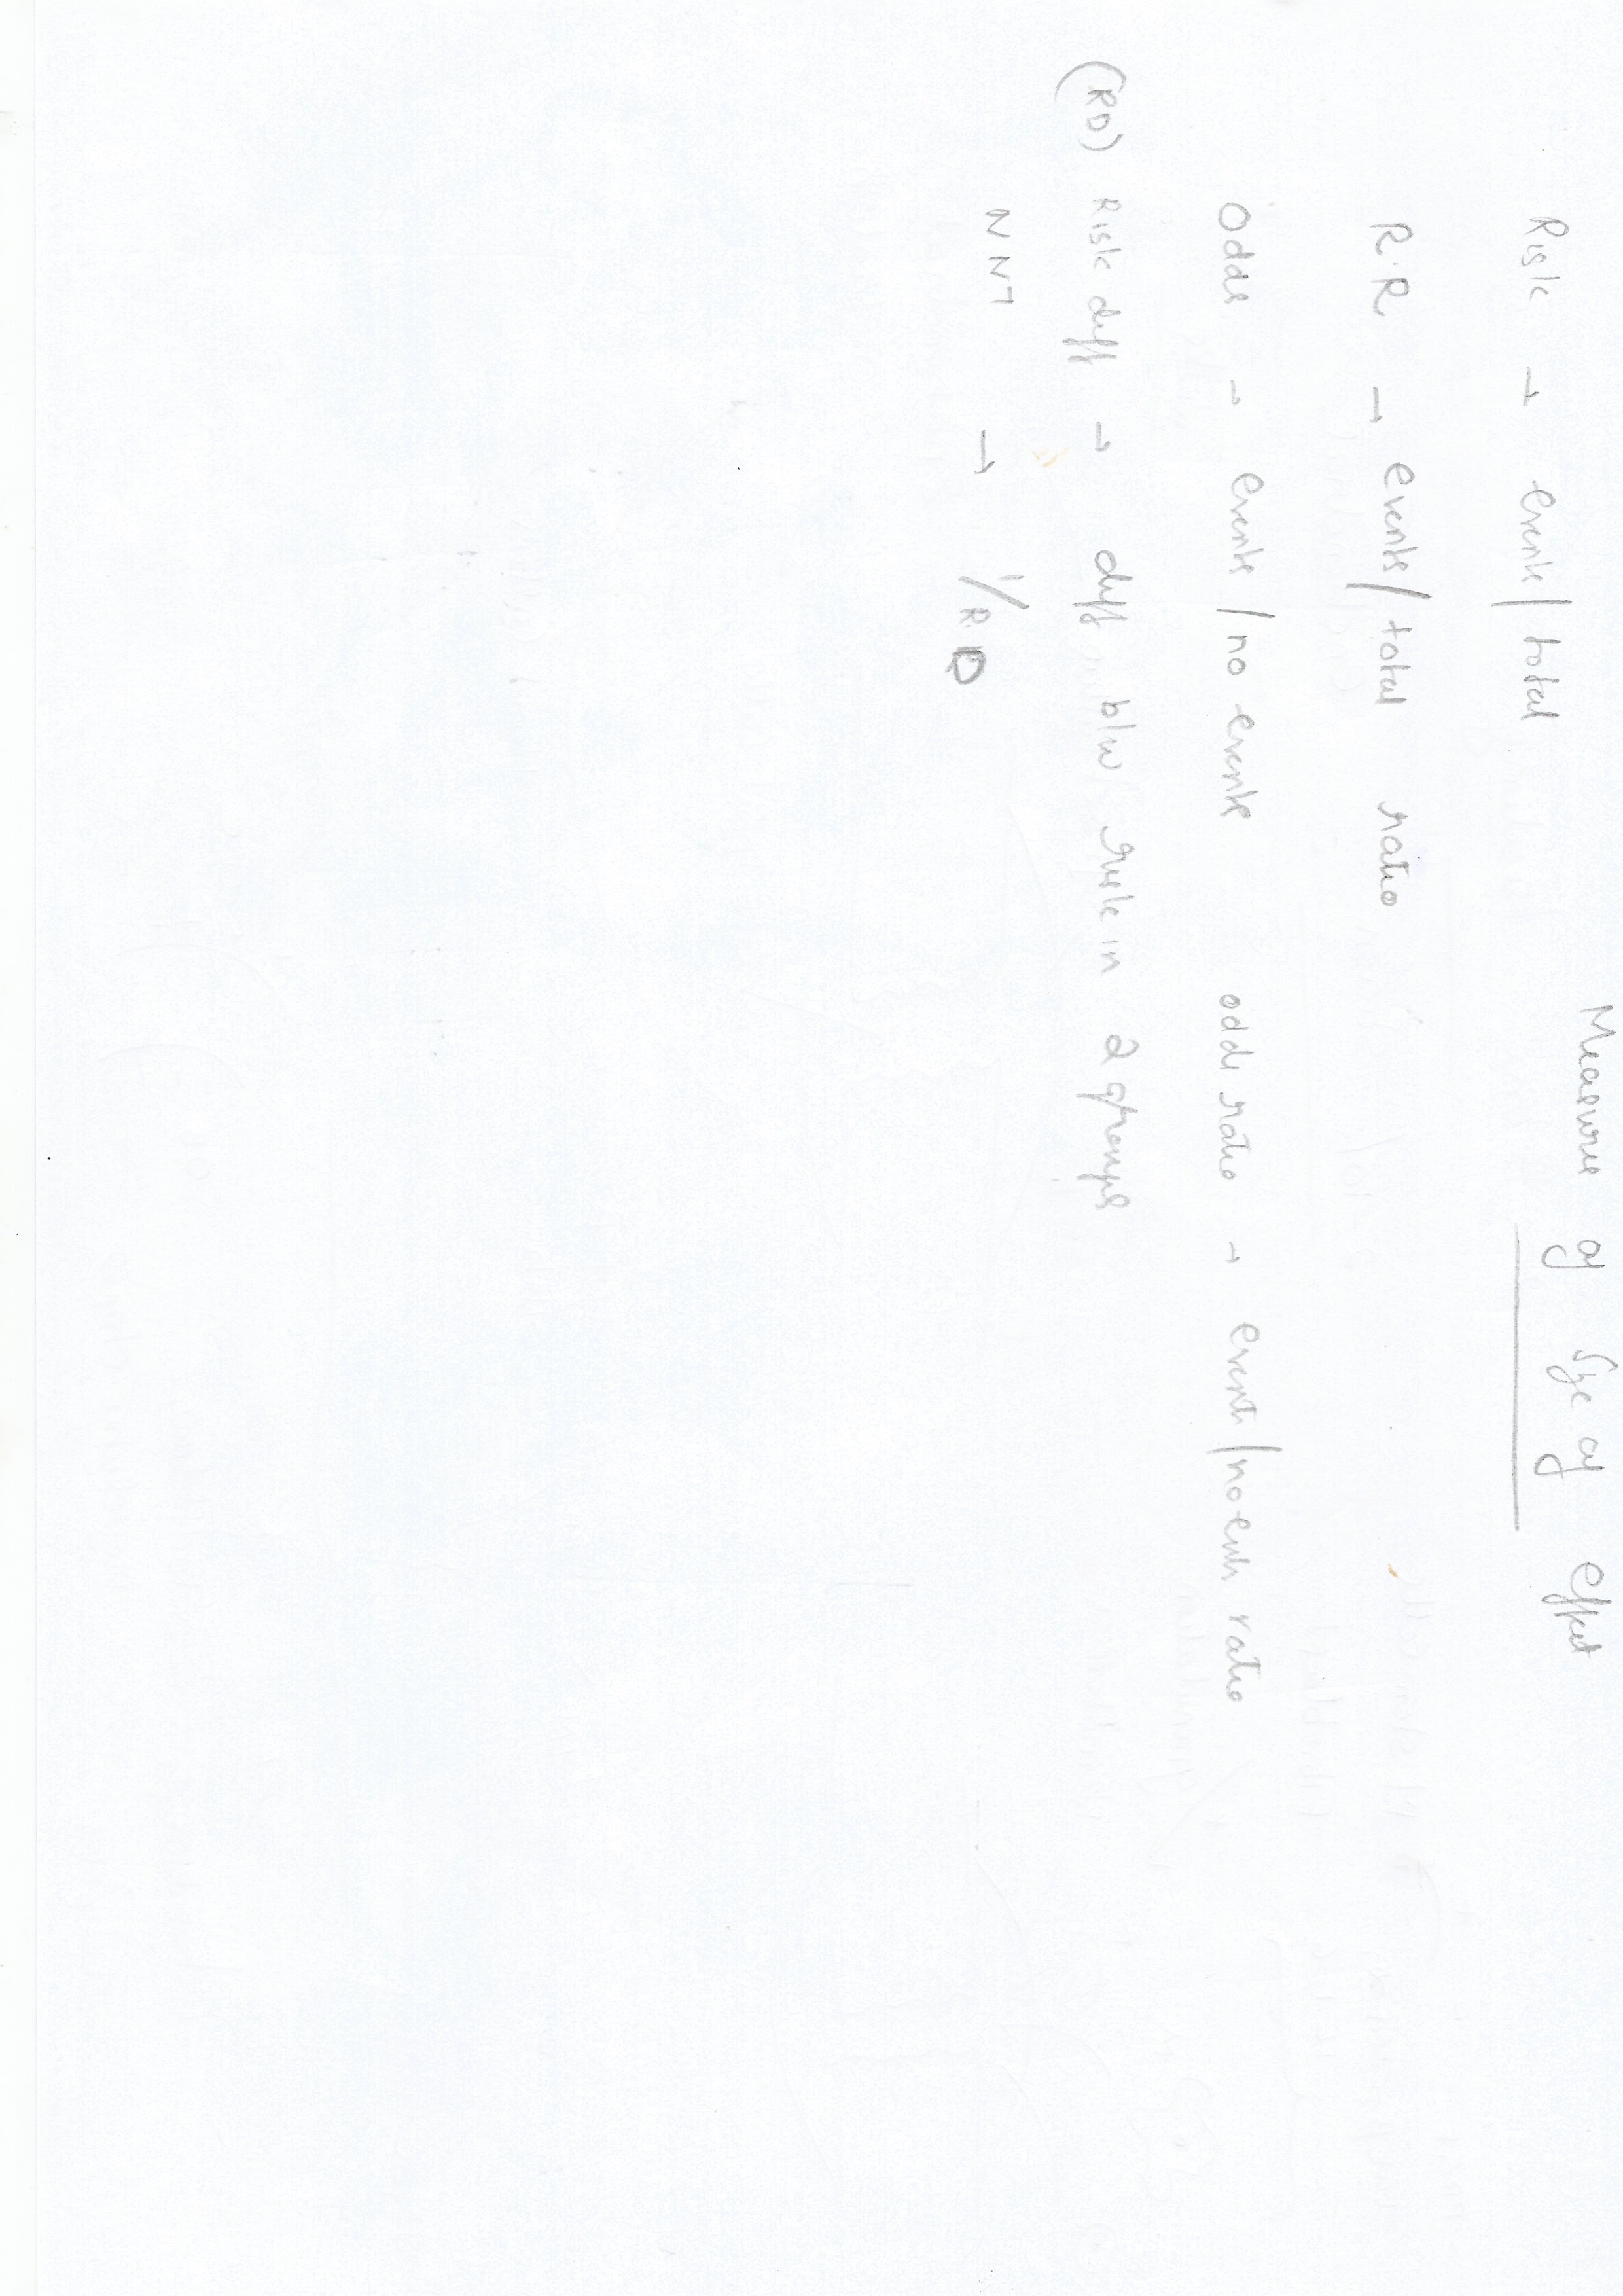 Measures of Size of effect
Risk → events/total
R.R → events/total ratio
Odds → events/no events odds ratio → event/no ratio
(RD) Risk diff → diff b/w risk in 2 groups
NNT → 1/R.D